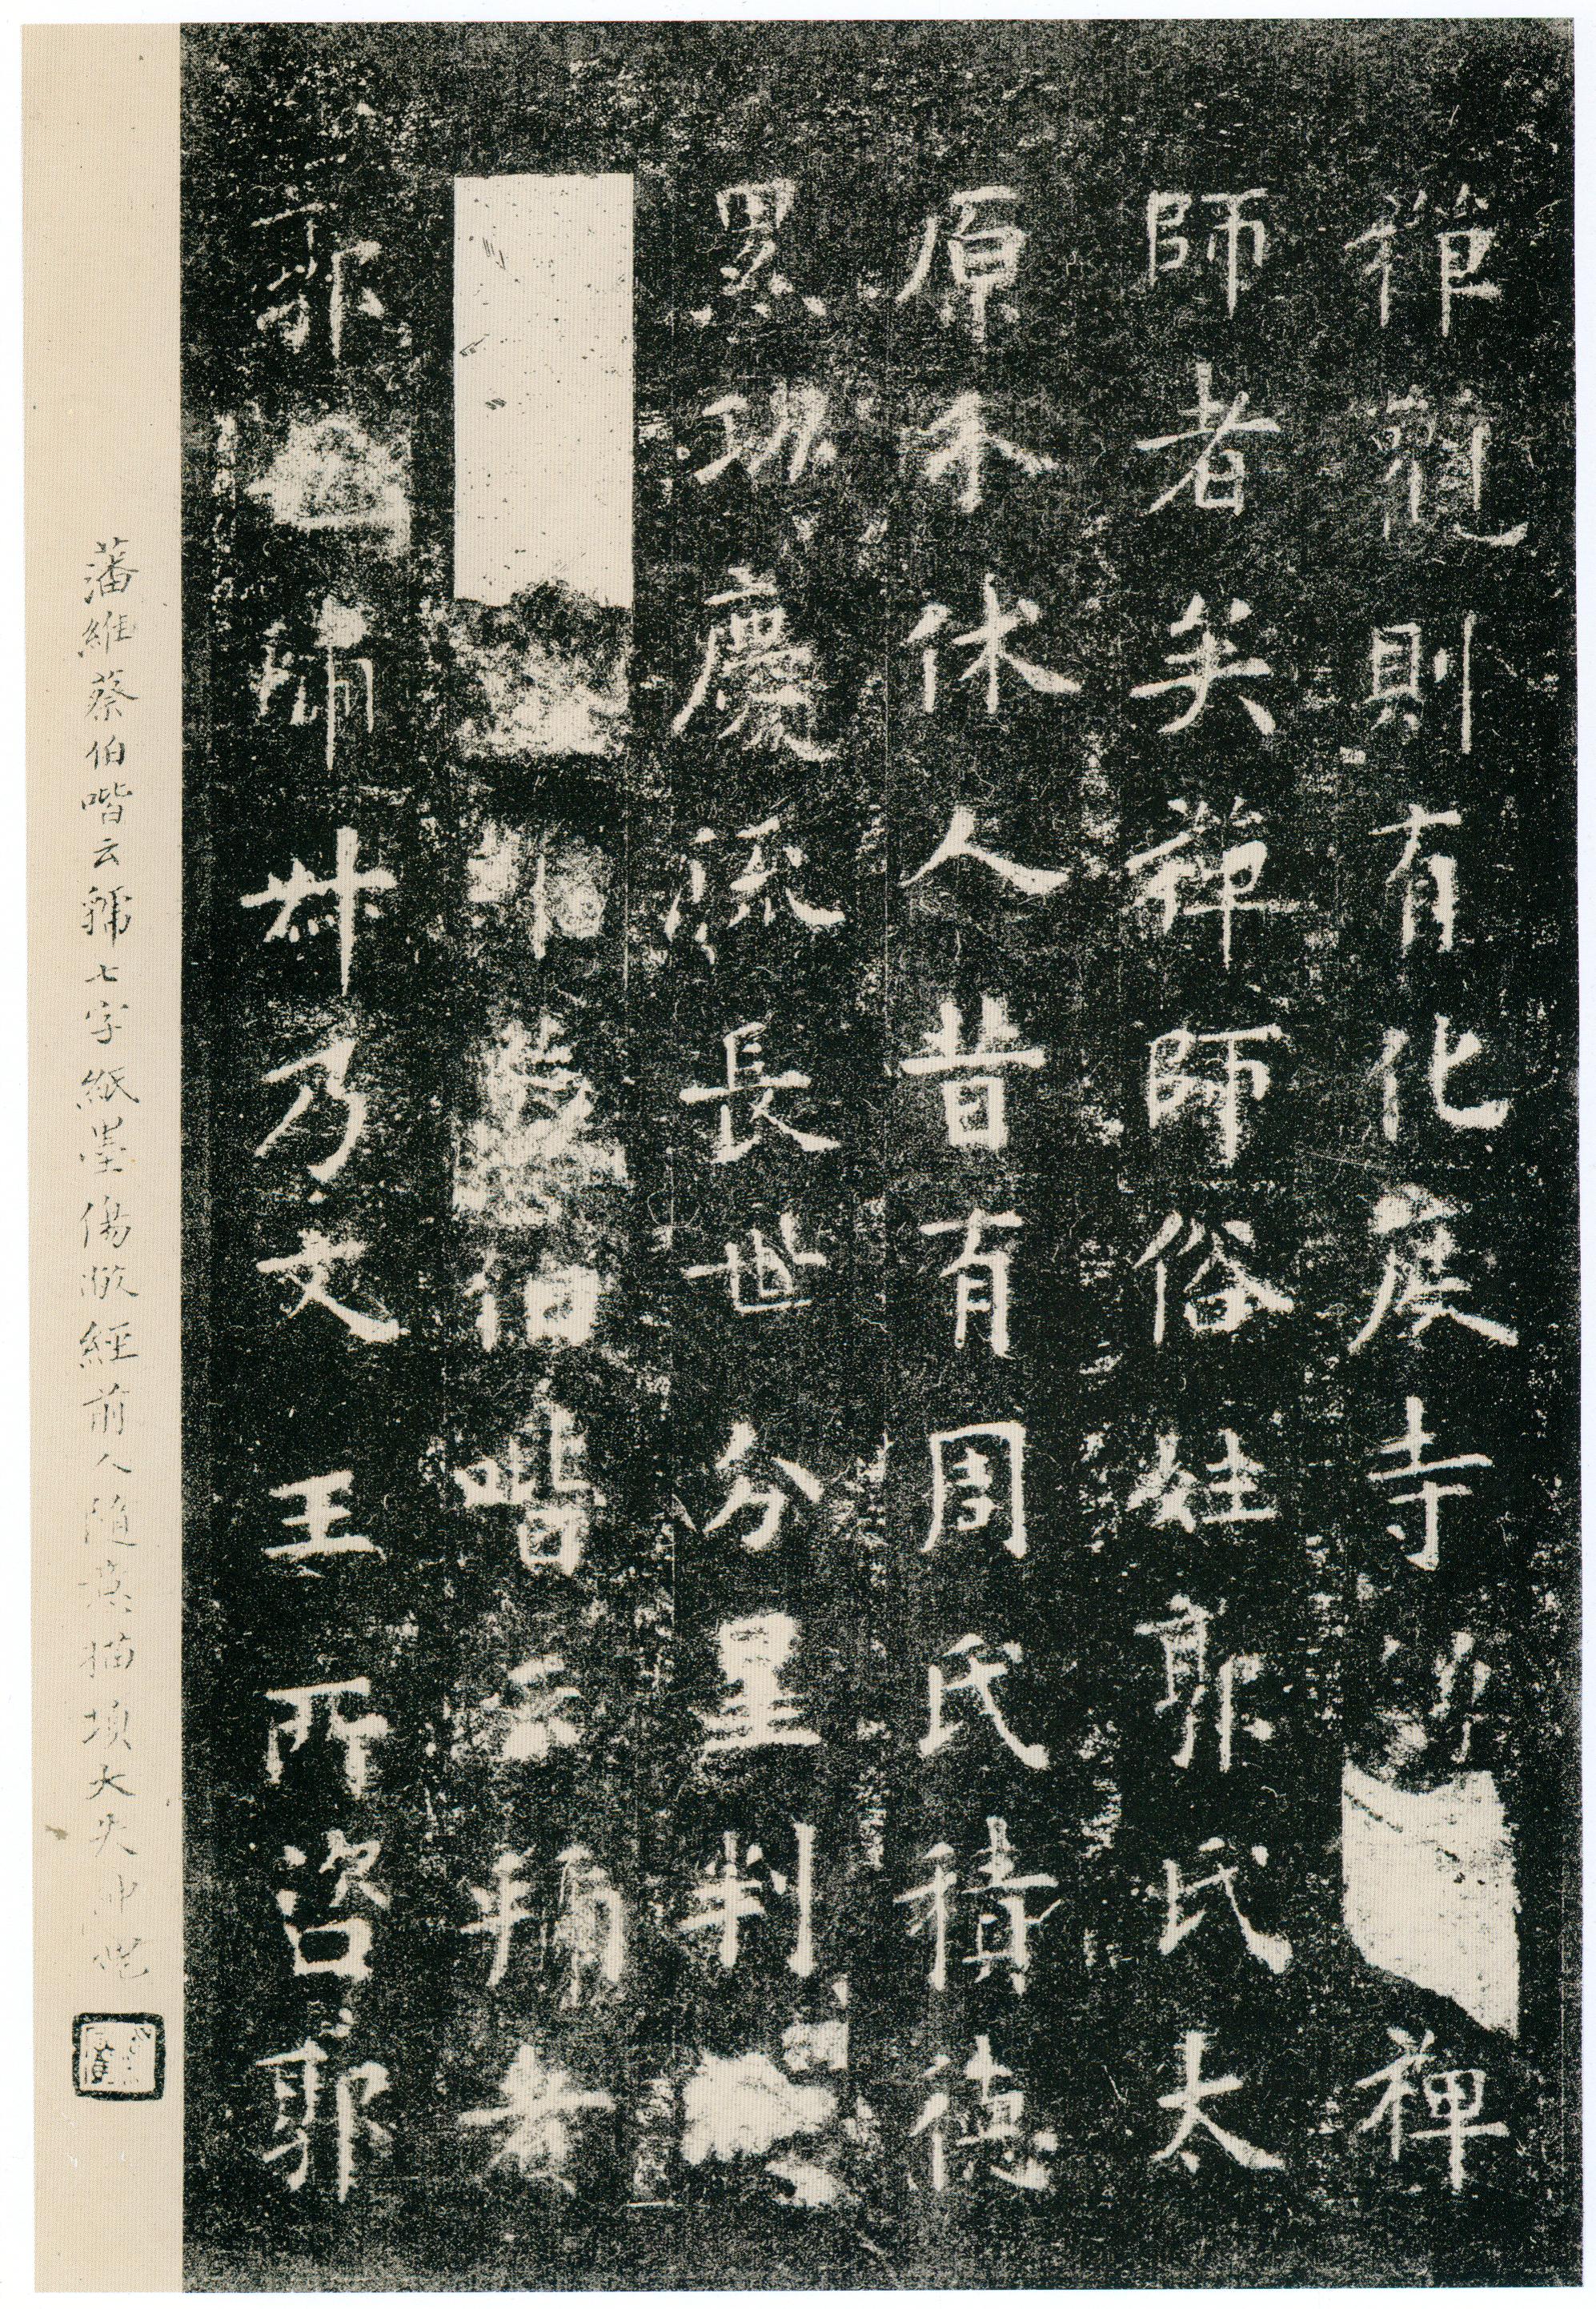 禪觀則有化度寺禪
師者矣禪師俗姓郭氏太
原介休人昔有周氏積德
累功慶流長世分星判
蔡伯喈云虢者
郭也虢叔乃文王所咨郭
藩維蔡伯喈云虢七字紙墨傷敝經前人隨意描填大失神理